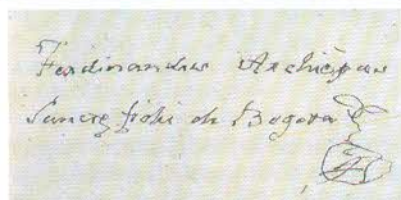 Ferdinandus Archiepus
Sanctę fidei de Bogota